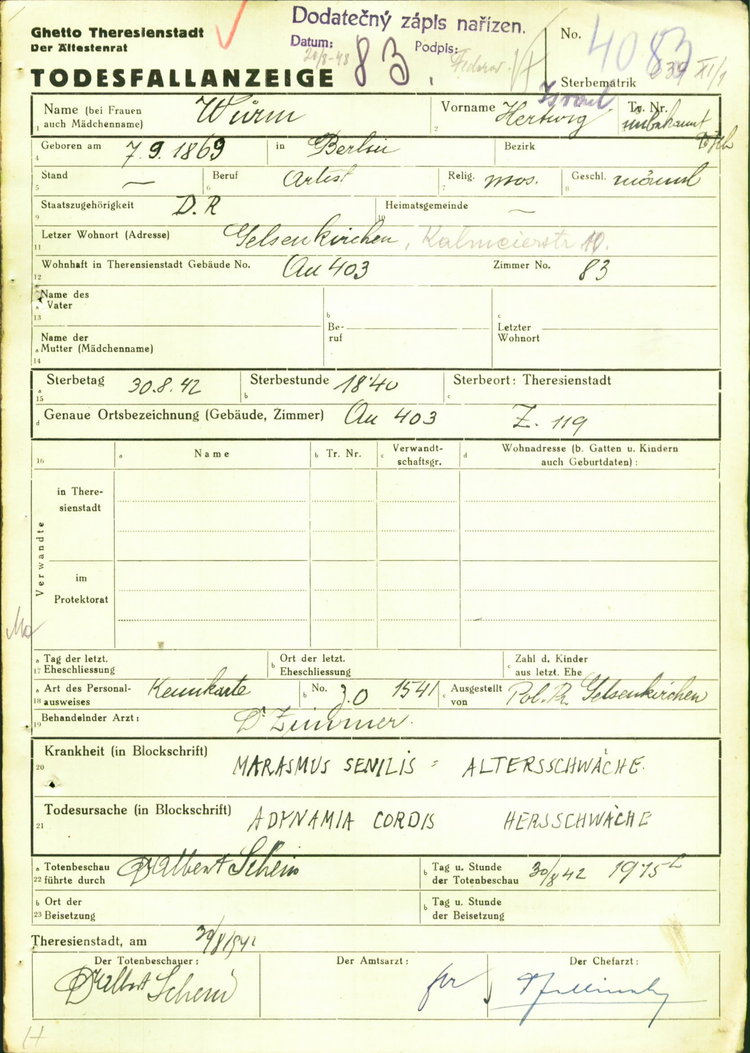 Ghetto Theresienstadt
Der Ältestenrat
TODESFALLANZEIGE
Dodatečný zápis nařízen.
Datum: 20/8-48 Podpis:
83.
No. 4083
Sterbematrik 839 XI/1
1 Name (bei Frauen auch Mädchenname) Wurm
2 Vorname Hertwig Israel
Tr. Nr. unbekannt
4 Geboren am 7.9.1869 in Berlin Bezirk
5 Stand — 6 Beruf Artist Relig. mos. 8 Geschl. männl
9 Staatszugehörigkeit D.R 10 Heimatsgemeinde —
11 Letzer Wohnort (Adresse) Gelsenkirchen, Kalmeierstr 10.
12 Wohnhaft in Theresienstadt Gebäude No. Au 403 Zimmer No. 83
13 a Name des Vater b Beruf c Letzter Wohnort
14 a Name der Mutter (Mädchenname)
15 a Sterbetag 30.8.42 b Sterbestunde 18'40 c Sterbeort: Theresienstadt
d Genaue Ortsbezeichnung (Gebäude, Zimmer) Au 403 Z. 119
16 a Name b Tr. Nr. c Verwandtschaftsgr. d Wohnadresse (b. Gatten u. Kindern auch Geburtdaten):
Verwandte
in Theresienstadt
im Protektorat
17 a Tag der letzt. Eheschliessung b Ort der letzt. Eheschliessung c Zahl d. Kinder aus letzt. Ehe
18 a Art des Personalausweises Kennkarte b No. J.O 1541 c Ausgestellt von Pol. Pr. Gelsenkirchen
19 Behandelnder Arzt: Dr Zimmer.
20 Krankheit (in Blockschrift) MARASMUS SENILIS = ALTERSSCHWÄCHE.
21 Todesursache (in Blockschrift) ADYNAMIA CORDIS HERSSCHWÄCHE
22 a Totenbeschau führte durch Dr Albert Schein b Tag u. Stunde der Totenbeschau 30/8 42 1915 h
23 b Ort der Beisetzung b Tag u. Stunde der Beisetzung
Theresienstadt, am 30/8/1942
Der Totenbeschauer: Der Amtsarzt: Der Chefarzt:
Dr Albert Schein für